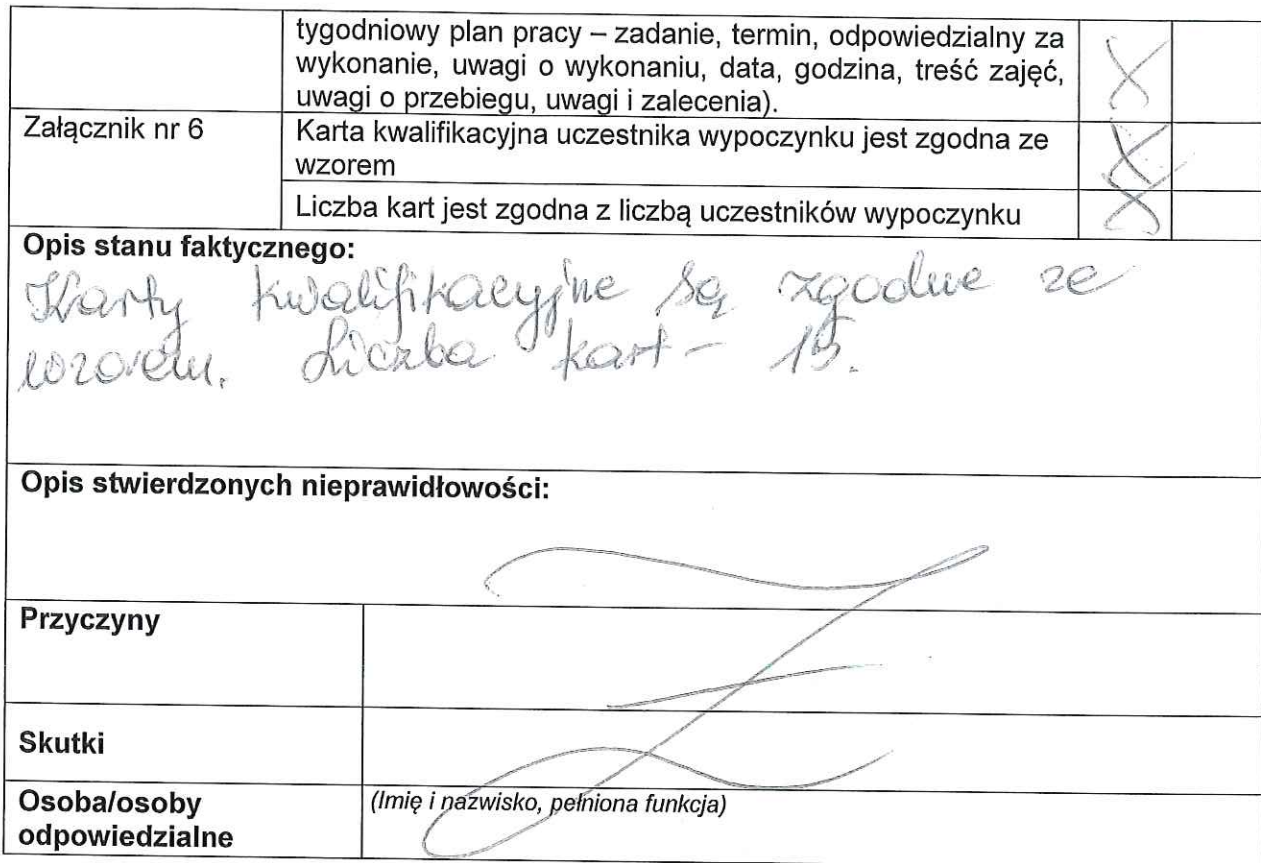 tygodniowy plan pracy – zadanie, termin, odpowiedzialny za
wykonanie, uwagi o wykonaniu, data, godzina, treść zajęć,
uwagi o przebiegu, uwagi i zalecenia).
Załącznik nr 6
Karta kwalifikacyjna uczestnika wypoczynku jest zgodna ze
wzorem
Liczba kart jest zgodna z liczbą uczestników wypoczynku
Opis stanu faktycznego:
Karty kwalifikacyjne są zgodne ze
wzorem. Liczba kart -
Opis stwierdzonych nieprawidłowości:
Przyczyny
Skutki
Osoba/osoby
odpowiedzialne
(Imię i nazwisko, pełniona funkcja)